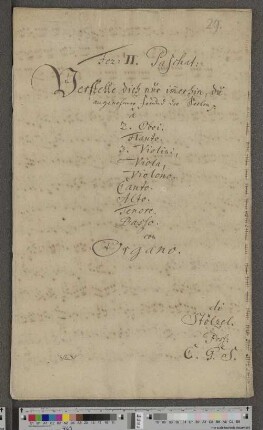 29.
Fer: II. Paschat:
Verstelle dich nur immerhin, du
angenehmer Handel der Seelen,
a
2. Oboi.
Flauto.
3. Violini,
Viola,
Violono.
Canto.
Alto.
Tenore.
Basso.
con
Organo.
di
Stölzel.
Poss.
C. G. S.